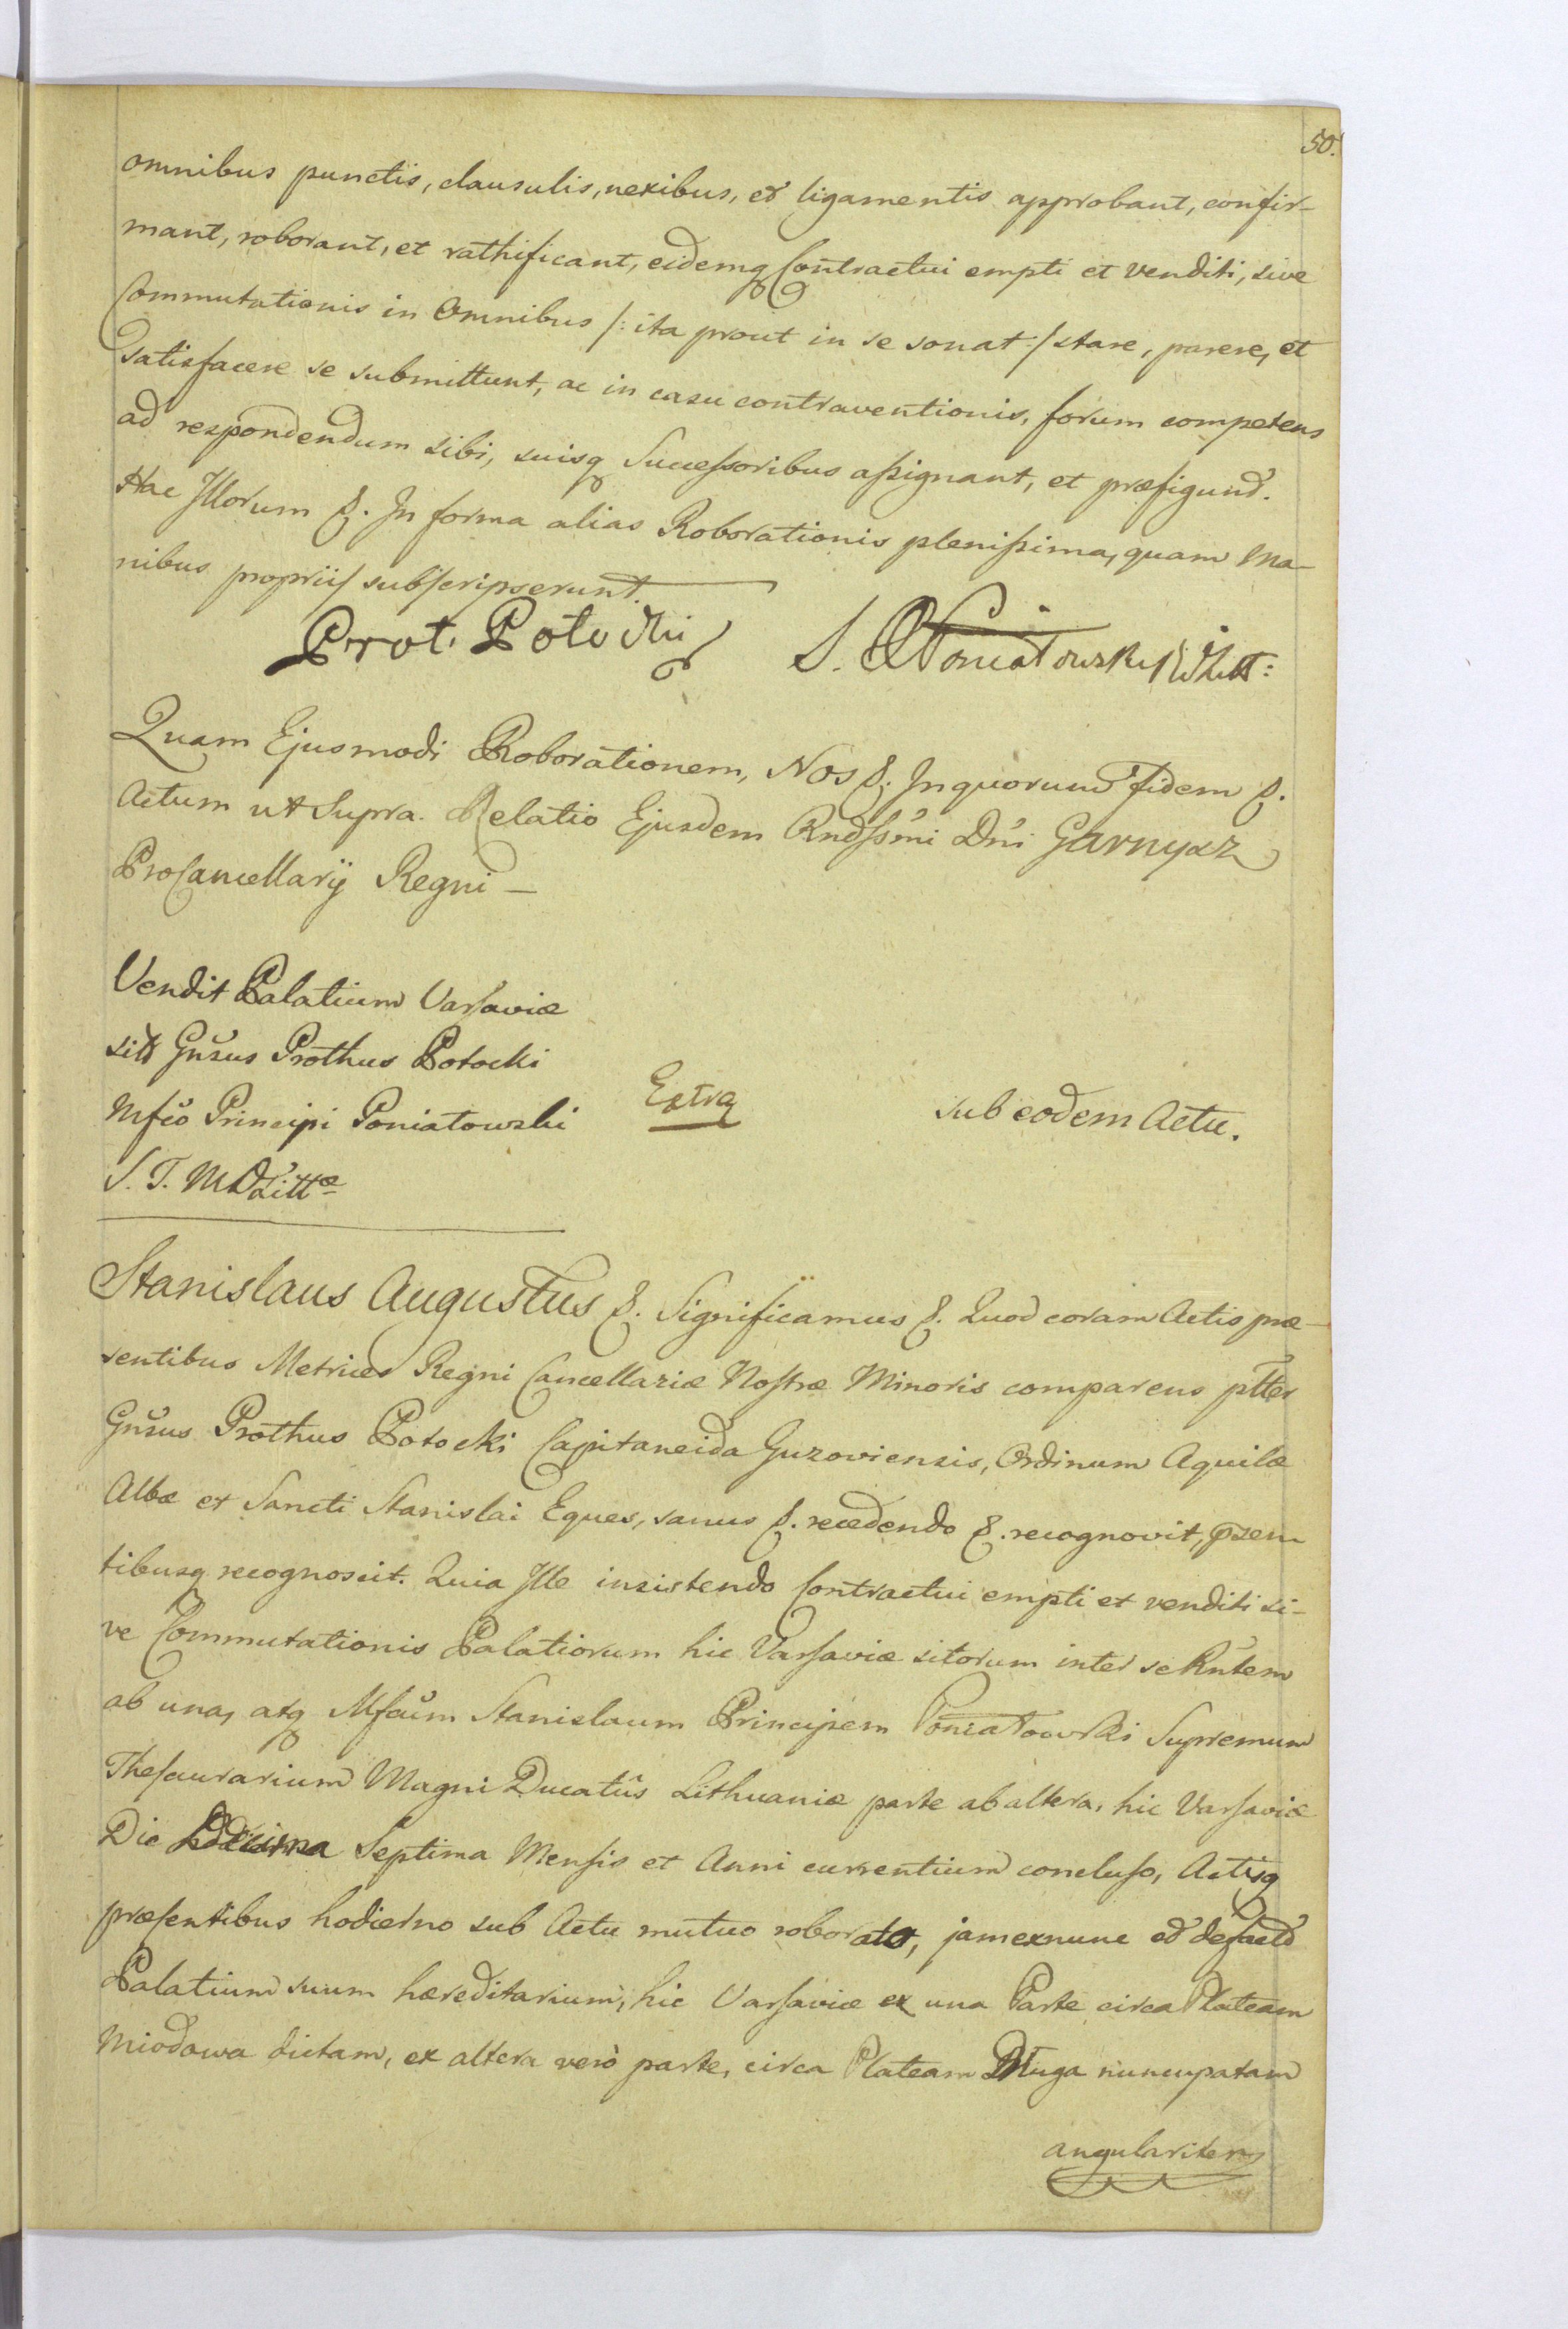 50.
omnibus punctis, clausulis, nexibus, et ligamentis approbant, confir-
mant, roborant, et rathificant, eidemq Contractui empti et venditi, sive
Commutationis in Omnibus /: ita prout in se sonat :/ stare, parere, et
satisfacere se submittunt, ac in casu contraventionis, forum competens
ad respondendum sibi, suisq Successoribus assignant, et præfigund.
Hac Illorum &. In forma alias Roborationis plenissima, quam ma-
nibus propriis subscripserunt.
Prot. Potocki S. Poniatowski
Quam Ejusmodi Roborationem, Nos &. In quorum fidem &.
Actum ut Supra. Relatio Ejusdem Rndssmi Dni Garnysz
ProCancellarij Regni –
Vendit Palatium Varsaviæ
sitt Gnsus Prothus Potocki
Mfco Principi Poniatowski
S. T. M D Litt æ
Extra
sub eodem Actu.
Stanislaus Augustus &. Significamus &. Quod coram Actis præ-
sentibus Metrices Regni Cancellariæ Nostræ Minoris comparens ptter
Gnsus Prothus Potocki Capitaneida Guzoviensis, Ordinum Aquilæ
Albæ et Sancti Stanislai Eques, sanus &. recedendo &. recognovit, psen
tibusq recognoscit. Quia Ille insistendo Contractui empti et venditi si-
ve Commutationis Palatiorum hic Varsaviæ sitorum inter se Rntem
ab una, atq Mfcum Stanislaum Principem Poniatowski Supremum
Thesaurarium Magni Ducatûs Lithuaniæ parte ab altera, hic Varsaviæ
Die Decima Septima Mensis et Anni currentium concluso, Actisq
præsentibus hodierno sub Actu mutuo roborato, jamexnunc et defacto
Palatium suum hæreditarium, hic Varsaviæ ex una Parte circa Plateam
Miodowa dictam, ex altera verò parte, circa Plateam Długa nuncupatam
angulariter